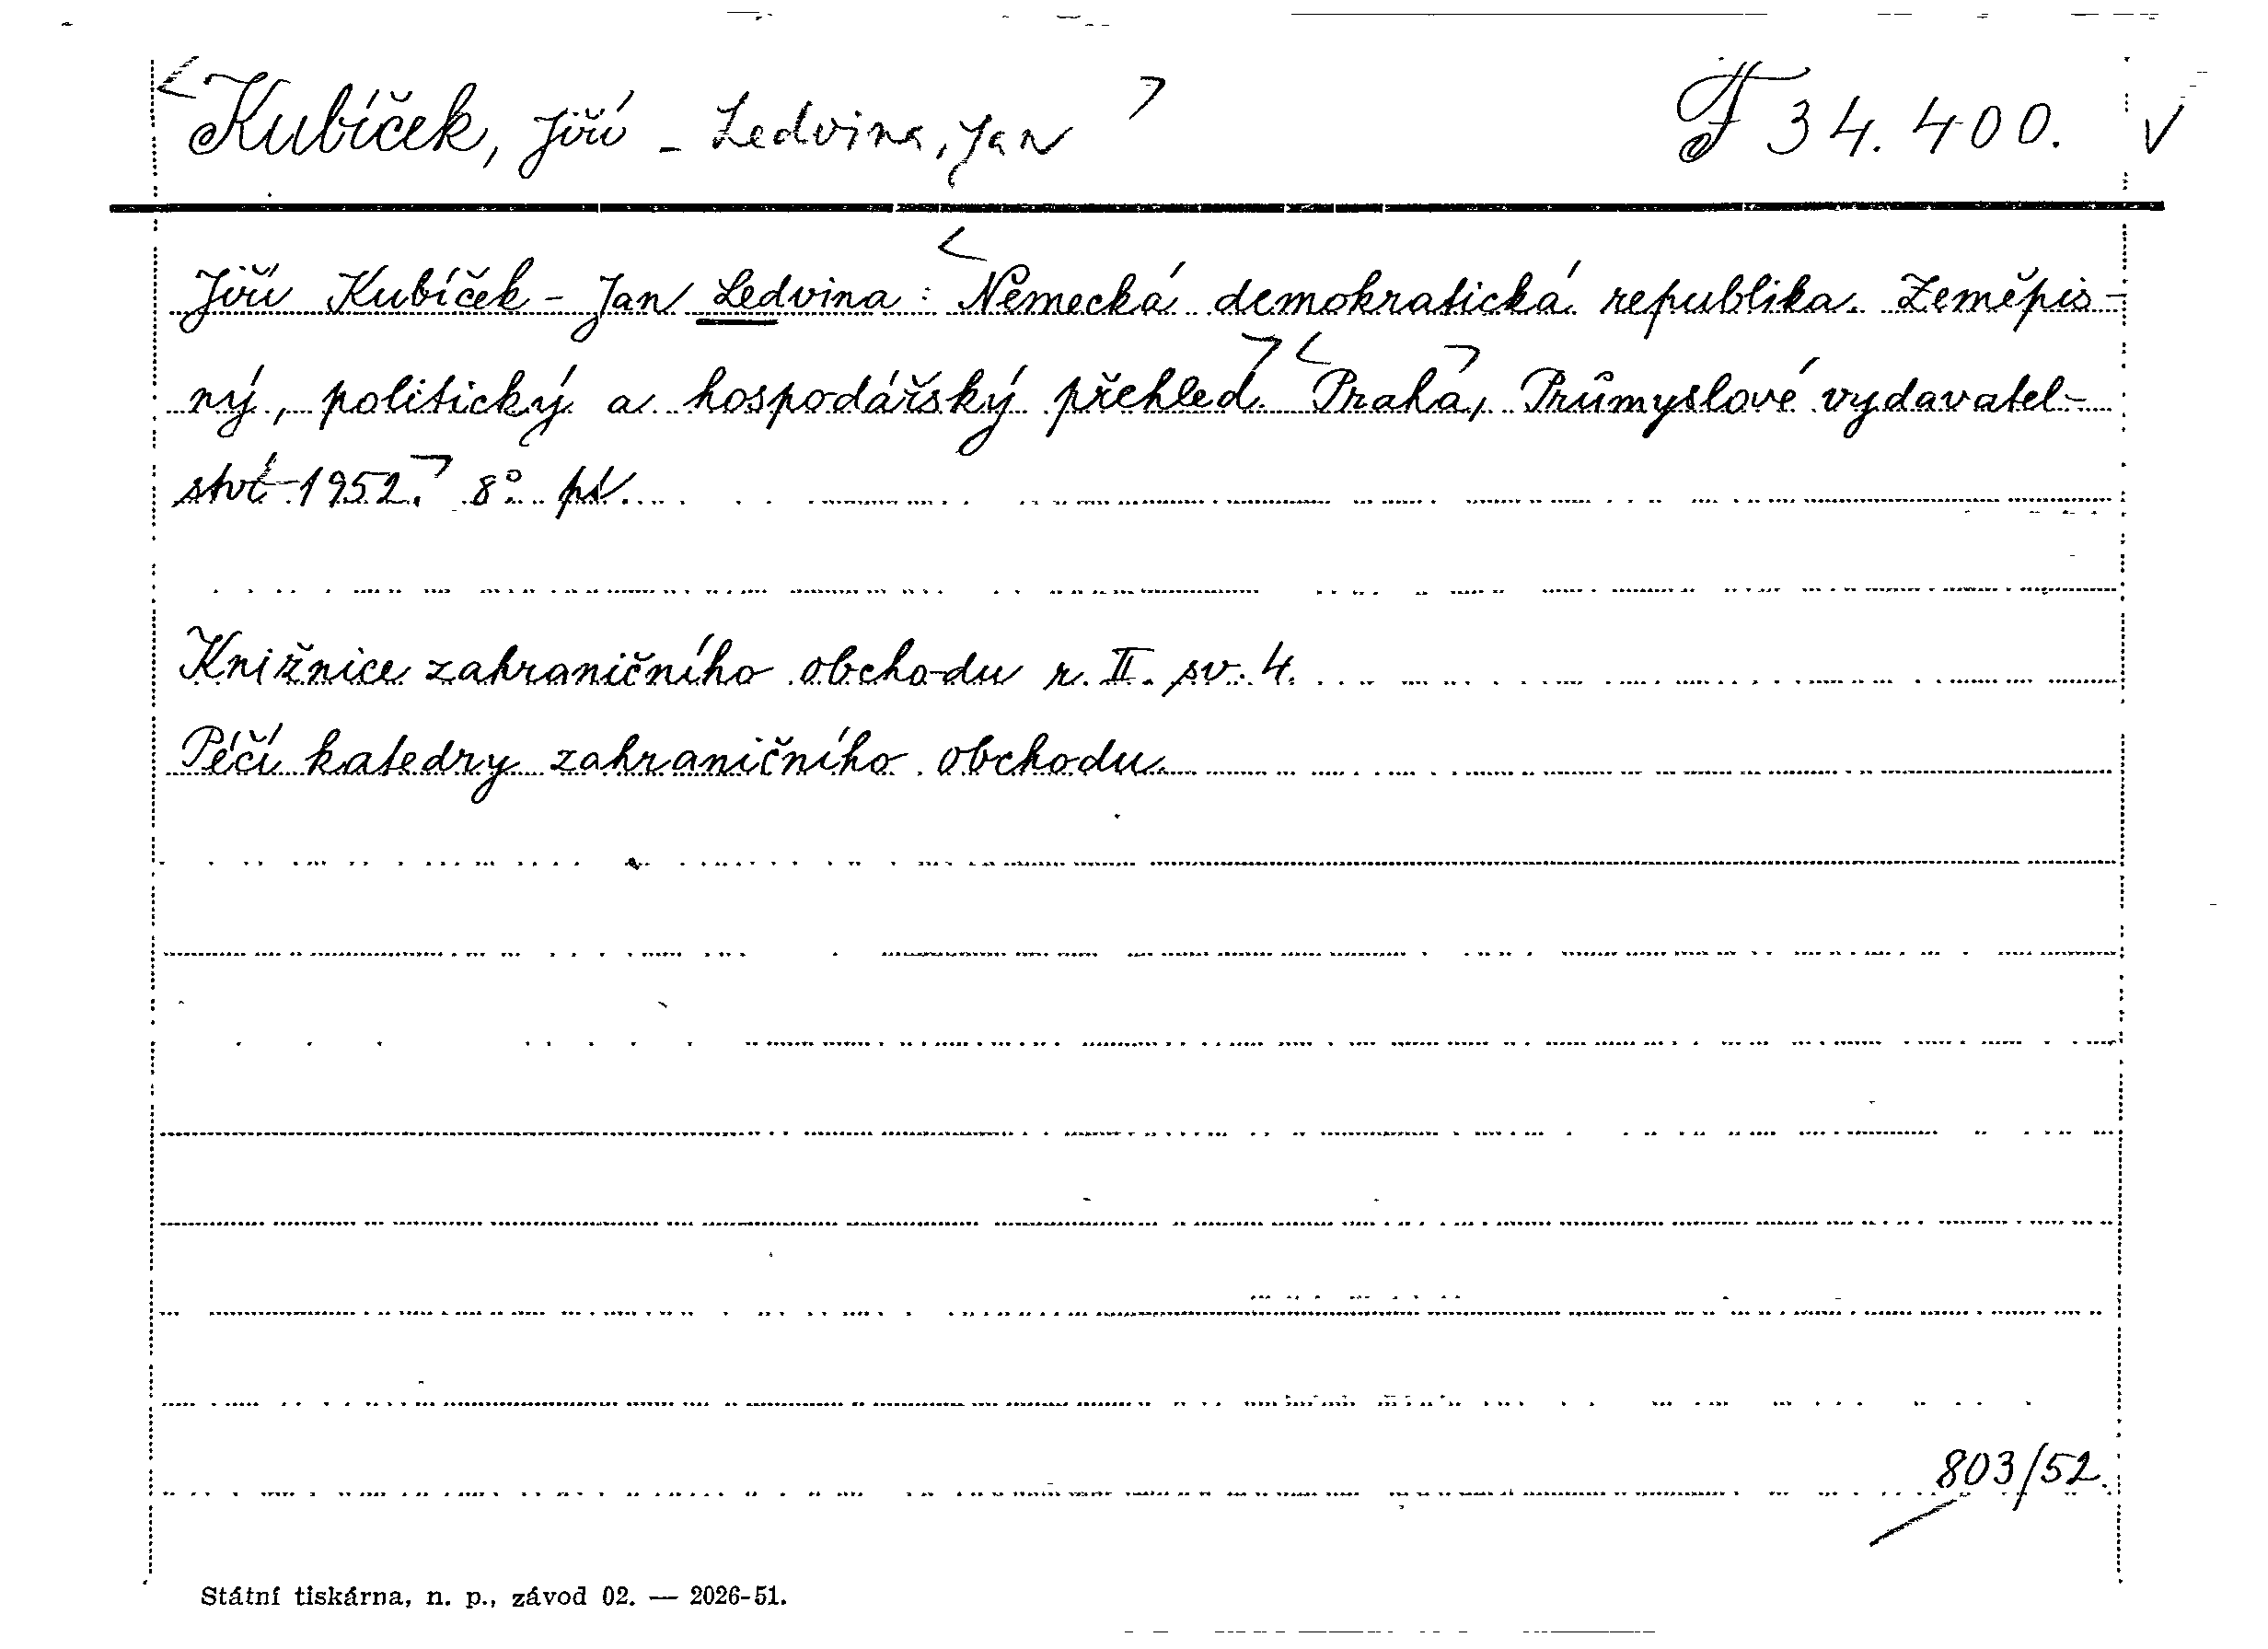 <Kubíček, Jiří - Ledvina, Jan> F 34.400. √
Jiří Kubíček - Jan Ledvina: <Německá demokratická republika. Zeměpis-
ný, politický a hospodářský přehled.> <Praha,> Průmyslové vydavatel-
ství 1952.> 8°. pv.
Knižnice zahraničního obchodu r. II. sv. 4.
Péčí katedry zahraničního obchodu.
803/52.
Státní tiskárna, n. p., závod 02. — 2026-51.